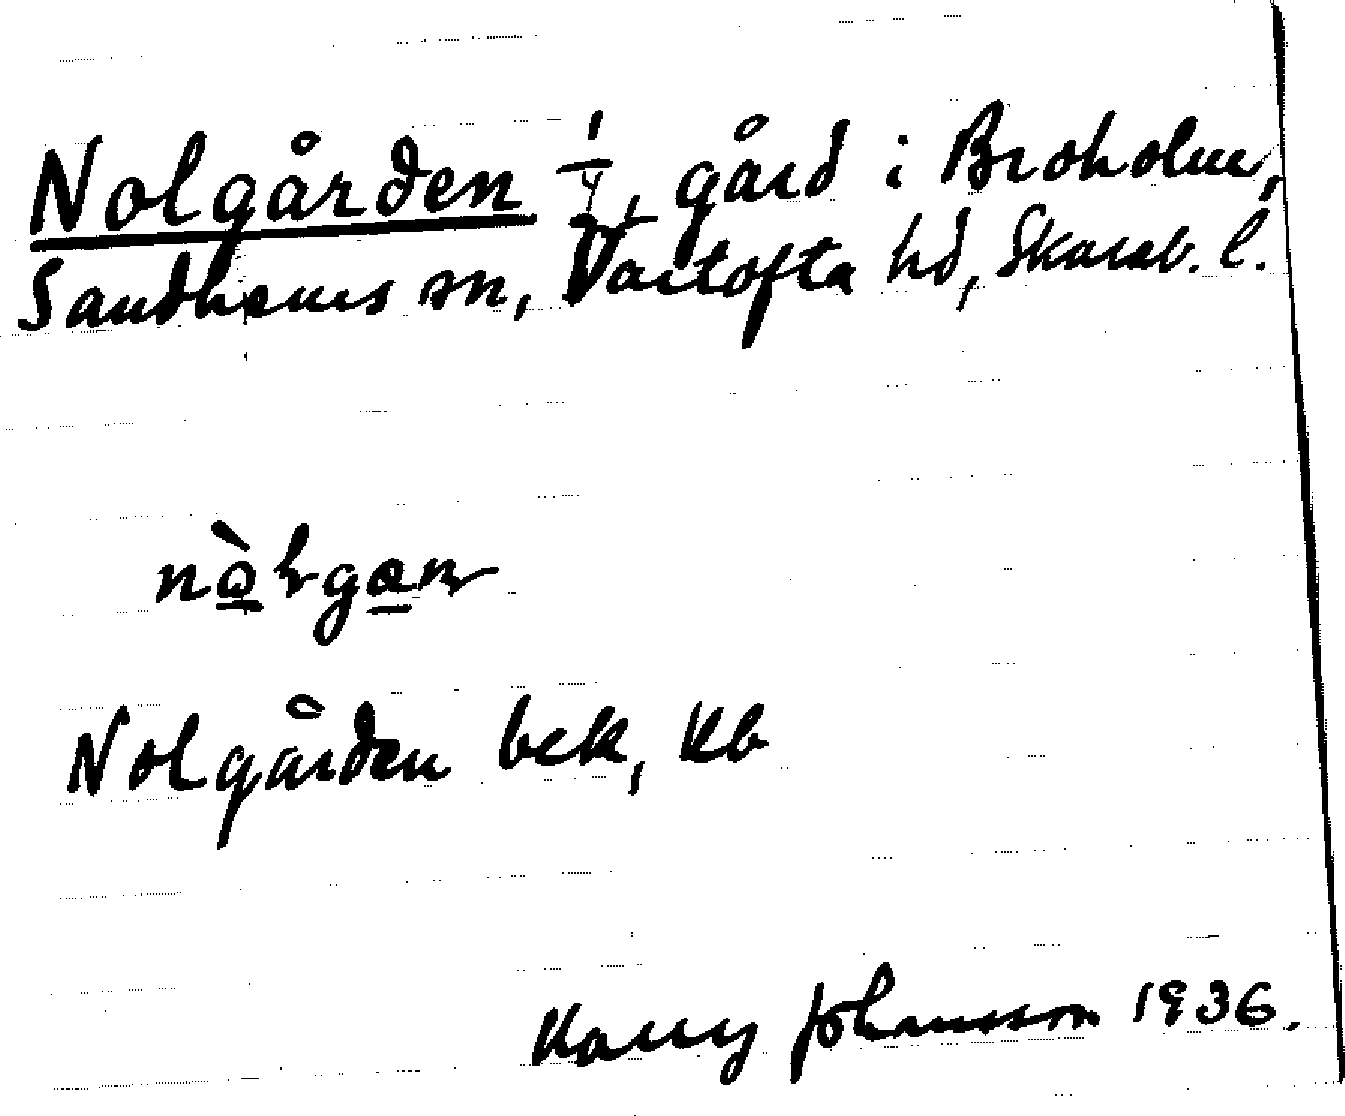 Nolgården 1/4, gård i Broholm,
Sandhems sn, Vartofta hd, Skarab. l.
Nolgården bek, Kb
Johansson 1936.